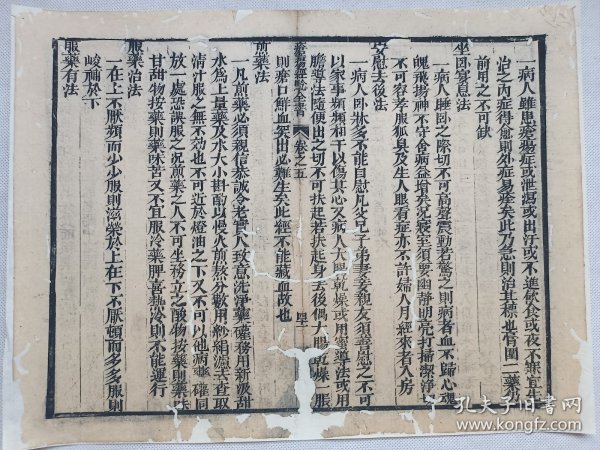 一病人雖患瘡瘍症或泄瀉或出汗或不進飲食或夜不寐宜先
治之內症得愈則外症易痊矣此乃急則治其標也胃圍二藥
前用之不可缺
坐臥宴息法
一病人睡臥之際切不可高聲震動若驚之則病者血不歸心魂
魄飛揚神不守舍病益增矣況寢室須要幽靜明亮打掃潔淨
不可容孝服狐臭及生人眼看症亦不許婦人月經來者入房
安慰去後法
一病人臥牀多不能自慰凡父兄子弟妻妾親友須善慰之不可
以家事煩頻和干以傷其心又病人大腸乾燥或用蜜導法或用
膽導法隨便出之切不可扶起若扶起身去後偶大腸乾燥一脹
則瘡口鮮血突出必難生矣此經不能藏血故也
瘡瘍經驗全書 卷之五
煎藥法
一凡煎藥必須親信恭誠令老實人致意洗淨藥礶務用新汲甜
水爲上量藥及水大小斟酌以慢火煎熬分數用紗絹濾去渣取
清汁服之無不效也不可近於燈油之下又不可以他病藥礶同
放一處恐誤服之況煎藥之人不可坐移立之酸物按藥則藥味
甘甜物按藥則藥味苦又不宜服冷藥脾喜熱冷則不能運行
服藥治法
一在上不厭頻而少少服則滋榮於上在下不厭頓而多多服則
峻補於下
服藥有法
孔夫子旧书网
www.kongfz.com